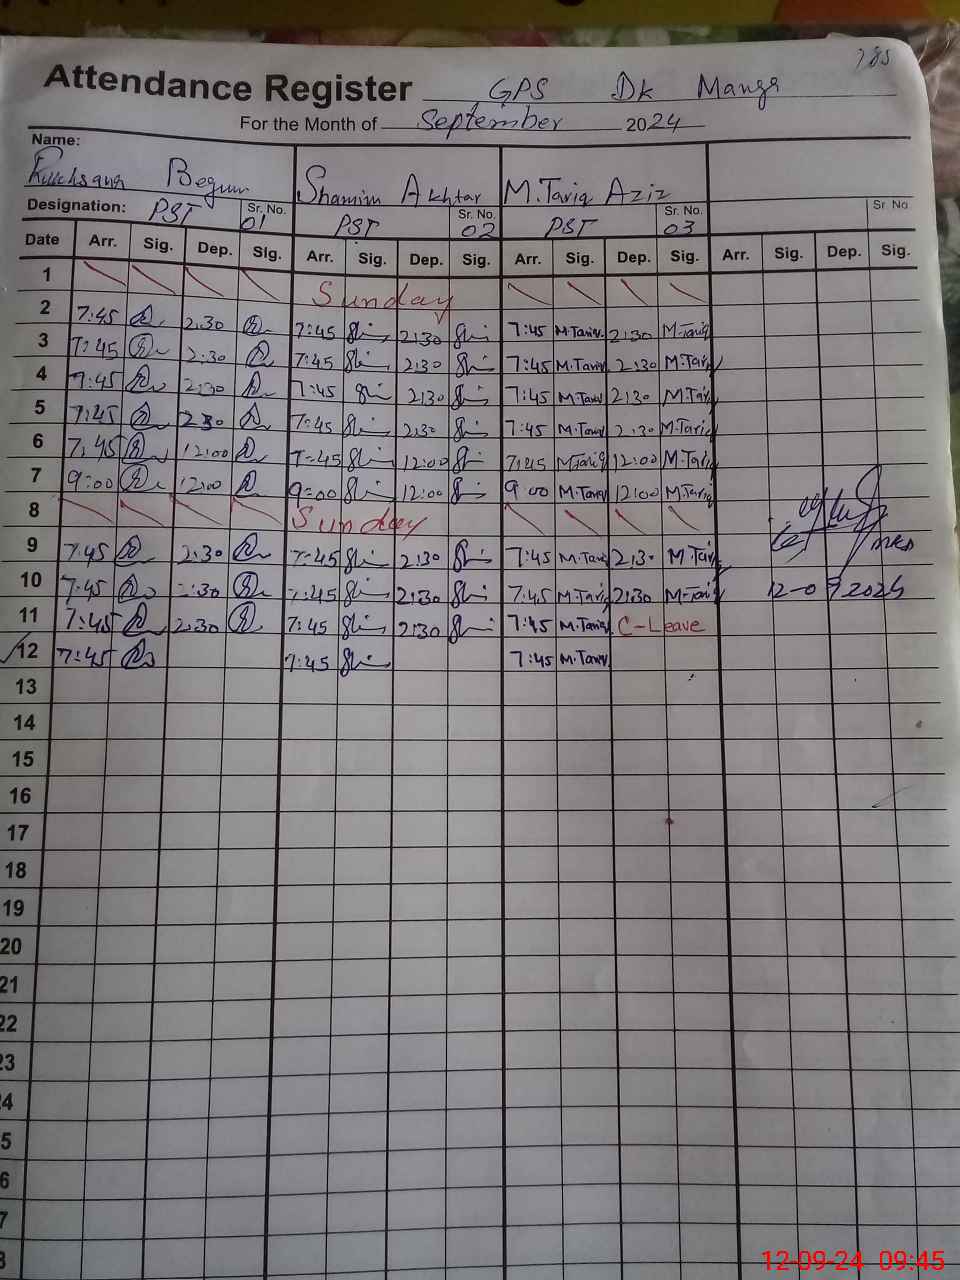 785
Attendance Register GPS Dk Manga
For the Month of September 2024
Name:
Rukhsana Begum Shamim Akhtar M.Tariq Aziz
Designation: PST Sr. No. 01 PST Sr. No. 02 PST Sr. No. 03 Sr. No
Date Arr. Sig. Dep. Sig. Arr. Sig. Dep. Sig. Arr. Sig. Dep. Sig. Arr. Sig. Dep. Sig.
1 Sunday
2 7:45 2:30 7:45 2:30 7:45 M.Tariq 2:30 M.Tariq
3 7:45 2:30 7:45 2:30 7:45 M.Tariq 2:30 M.Tariq
4 7:45 2:30 7:45 2:30 7:45 M.Tariq 2:30 M.Tariq
5 7:45 2:30 7:45 2:30 7:45 M.Tariq 2:30 M.Tariq
6 7:45 12:00 7:45 12:00 7:45 M.Tariq 12:00 M.Tariq
7 9:00 12:00 9:00 12:00 9:00 M.Tariq 12:00 M.Tariq
8 Sunday
9 7:45 2:30 7:45 2:30 7:45 M.Tariq 2:30 M.Tariq
10 7:45 2:30 7:45 2:30 7:45 M.Tariq 2:30 M.Tariq 12-09-2024
11 7:45 2:30 7:45 2:30 7:45 M.Tariq C-Leave
12 7:45 7:45 7:45 M.Tariq
13
14
15
16
17
18
19
20
21
22
23
24
5
6
7
8
12-09-24 09:45